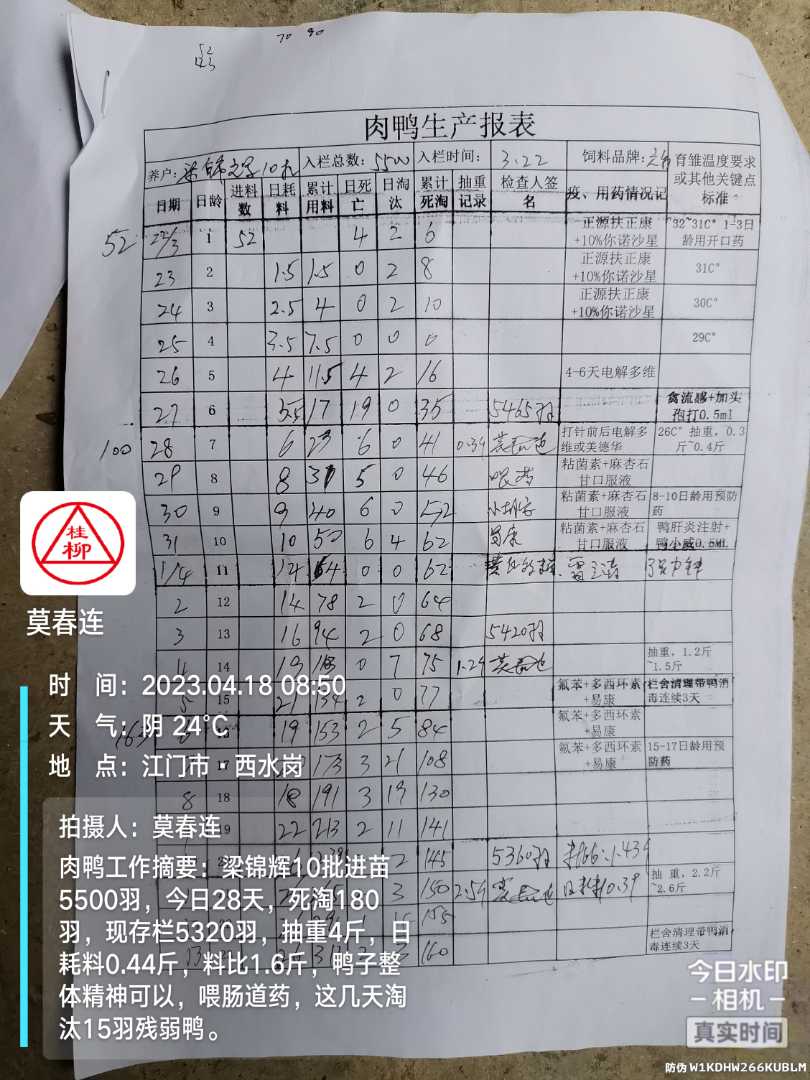 70 90
52
43
肉鸭生产报表
养户: 10批 入栏总数: 5500 入栏时间: 3.22 饲料品牌: 育雏温度要求或其他关键点标准
日期 日龄 进料数 日耗料 累计用料 日死亡 日淘汰 累计死淘 抽重记录 检查人签名 疫、用药情况记
52 22/3 1 52 4 2 6 正源扶正康+10%你诺沙星 32~31C° 1-3日龄用开口药
23 2 1.5 1.5 0 2 8 正源扶正康+10%你诺沙星 31C°
24 3 2.5 4 0 2 10 正源扶正康+10%你诺沙星 30C°
25 4 3.5 7.5 0 0 0 29C°
26 5 4 11.5 4 2 16 4-6天电解多维
27 6 5.5 17 19 0 35 5465羽 禽流感+加头孢打0.5ml
100 28 7 6 23 6 0 41 打针前后电解多维或美德华 26C° 抽重，0.3斤~0.4斤
29 8 8 31 5 0 46 粘菌素+麻杏石甘口服液
30 9 9 40 6 0 52 粘菌素+麻杏石甘口服液 8-10日龄用预防药
31 10 10 50 6 4 62 粘菌素+麻杏石甘口服液 鸭肝炎注射+鸭小威0.5ML
1/4 11 14 64 0 0 62
2 12 14 78 2 0 64
3 13 16 94 2 0 68 5420羽
4 14 19 0 7 75 抽重，1.2斤~1.5斤
5 15 21 134 2 0 77 氟苯+多西环素+易康 栏舍清理带鸭消毒连续3天
19 153 2 5 84 氟苯+多西环素+易康
17 173 3 21 108 氟苯+多西环素+易康 15-17日龄用预防药
8 18 18 191 3 19 130
22 213 2 11 141
2 145 5360羽
3 150 抽重，2.2斤~2.6斤
155
160 栏舍清理带鸭消毒连续3天
桂
柳
莫春连
时 间：2023.04.18 08:50
天 气：阴 24℃
地 点：江门市·西水岗
拍摄人：莫春连
肉鸭工作摘要：梁锦辉10批进苗
5500羽，今日28天，死淘180
羽，现存栏5320羽，抽重4斤，日
耗料0.44斤，料比1.6斤，鸭子整
体精神可以，喂肠道药，这几天淘
汰15羽残弱鸭。
今日水印
相机
真实时间
防伪 W1KDHW266KUBLM